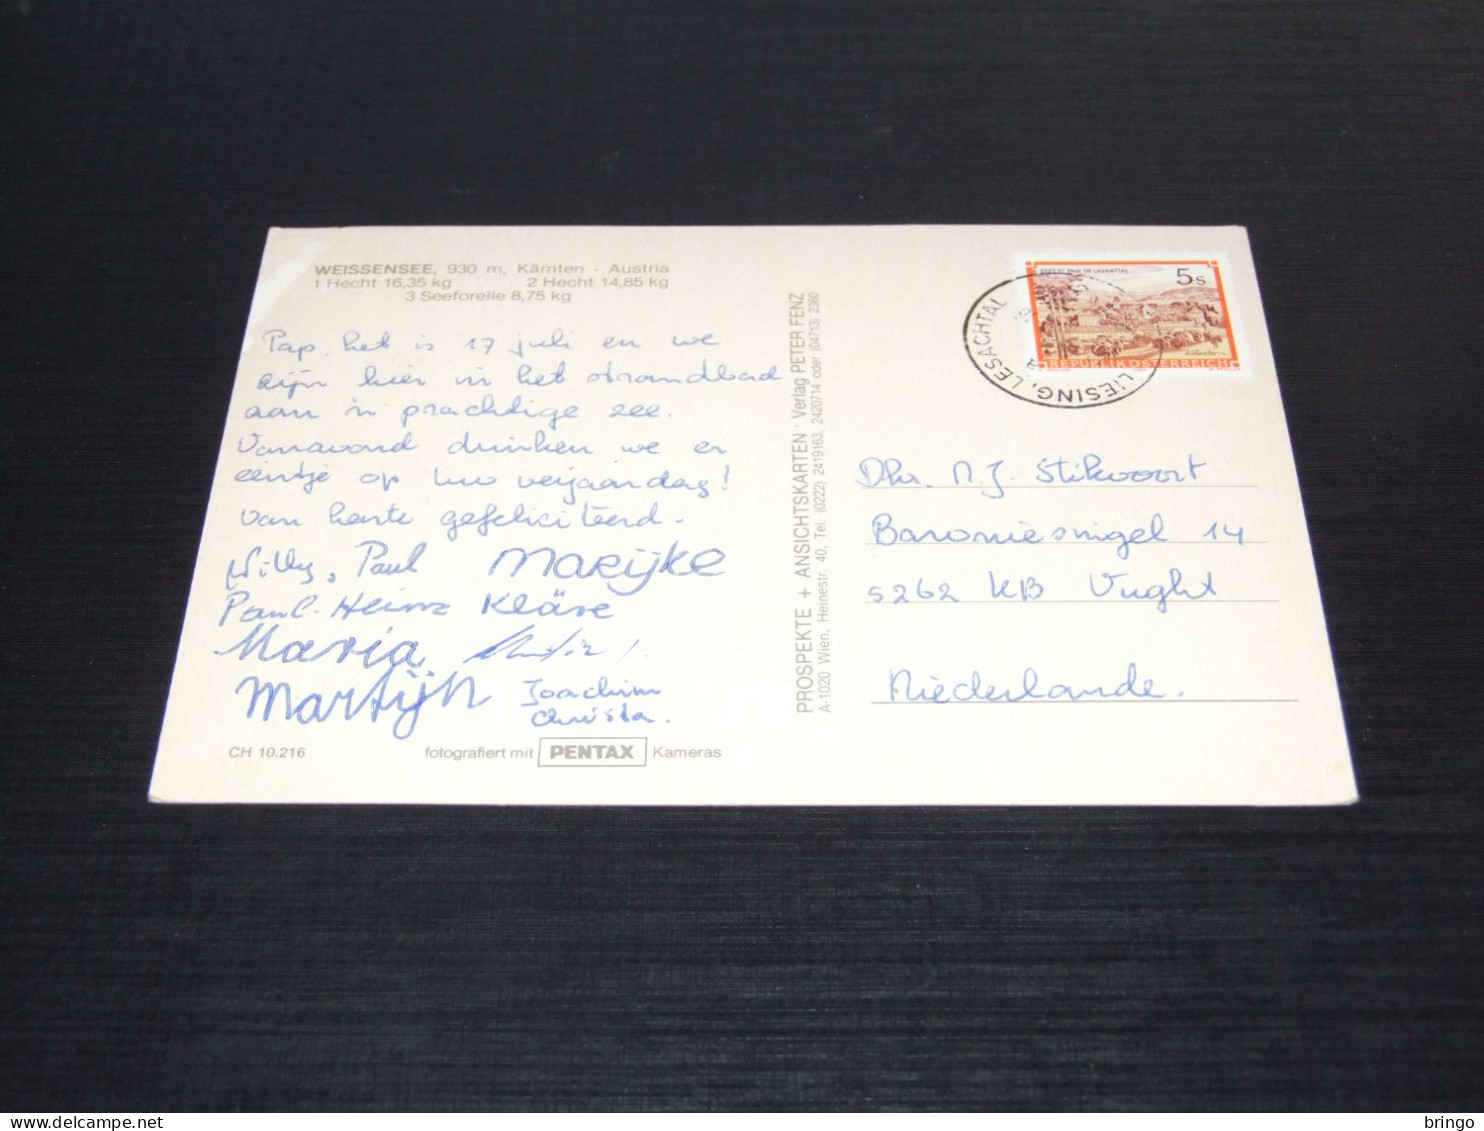 WEISSENSEE, 930 m, Kärnten - Austria
1 Hecht 16,35 kg 2 Hecht 14,85 kg
3 Seeforelle 8,75 kg
Pap, het is 17 juli en we
zijn hier in het strandbad
aan 'n prachtige zee.
Vanavond drinken we er
eentje op uw verjaardag!
Van harte gefeliciteerd.
Willy, Paul MARIJKE
Paul-Heinz Kläre
Maria
Martijn Joachim
Christa.
CH 10.216 fotografiert mit PENTAX Kameras
PROSPEKTE + ANSICHTSKARTEN · Verlag PETER FENZ
A-1020 Wien, Heinestr. 40, Tel. (0222) 2419163, 2420714 oder (04713) 2360
LIESING, LESACHTAL
STIFT ST. PAUL IM LAVANTTAL
5 S
REPUBLIK ÖSTERREICH
Dhr. M.J. Stikvoort
Baroniesingel 14
5262 KB Vught
Niederlande.
bringo